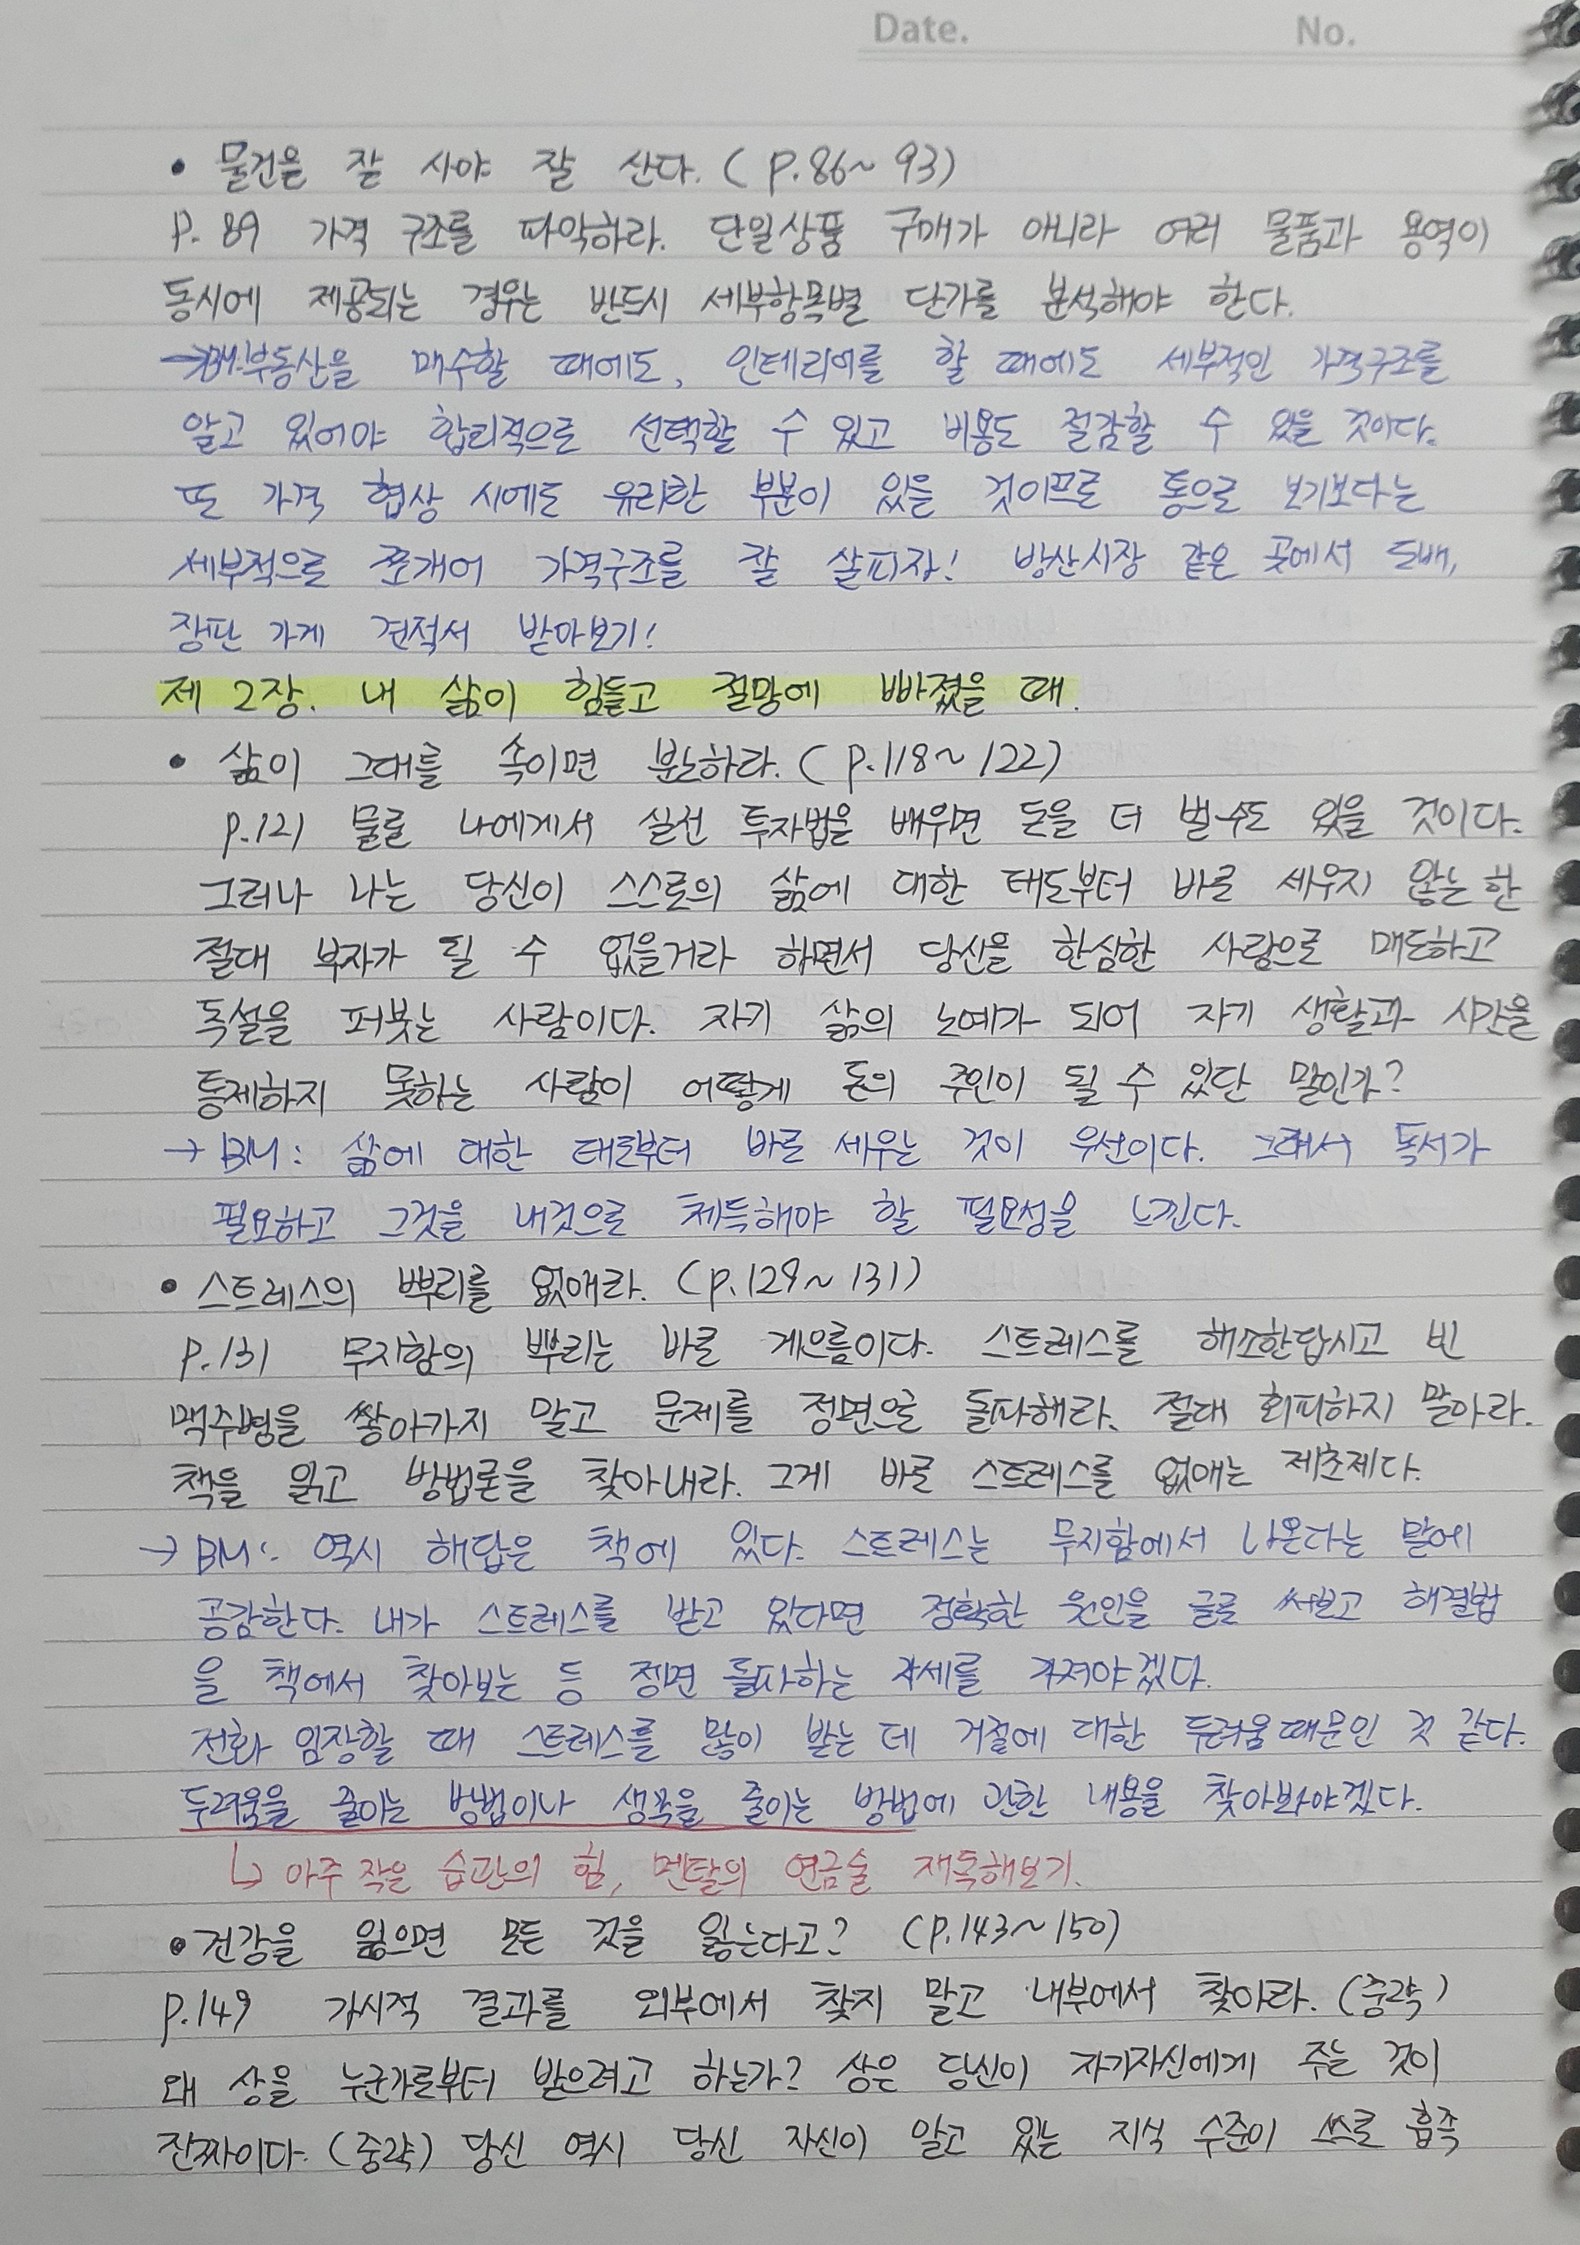 Date.	No.
• 물건을 잘 사야 잘 산다. ( P.86~ 93)
P. 89 가격 구조를 파악하라. 단일상품 구매가 아니라 여러 물품과 용역이
동시에 제공되는 경우는 반드시 세부항목별 단가를 분석해야 한다.
→BM:부동산을 매수할 때에도, 인테리어를 할 때에도 세부적인 가격구조를
알고 있어야 합리적으로 선택할 수 있고 비용도 절감할 수 있을 것이다.
또 가격 협상 시에도 유리한 부분이 있을 것이므로 통으로 보기보다는
세부적으로 쪼개어 가격구조를 잘 살피자! 방산시장 같은 곳에서 도배,
장판 가게 견적서 받아보기!
제 2장. 내 삶이 힘들고 절망에 빠졌을 때.
• 삶이 그대를 속이면 분노하라. ( P.118~ 122)
P.121 물론 나에게서 실전 투자법을 배우면 돈을 더 벌수도 있을 것이다.
그러나 나는 당신이 스스로의 삶에 대한 태도부터 바로 세우지 않는 한
절대 부자가 될 수 없을거라 하면서 당신을 한심한 사람으로 매도하고
독설을 퍼붓는 사람이다. 자기 삶의 노예가 되어 자기 생활과 시간을
통제하지 못하는 사람이 어떻게 돈의 주인이 될 수 있단 말인가?
→ BM: 삶에 대한 태도부터 바로 세우는 것이 우선이다. 그래서 독서가
필요하고 그것을 내것으로 체득해야 할 필요성을 느낀다.
• 스트레스의 뿌리를 없애라. (P.129~ 131)
P.131 무지함의 뿌리는 바로 게으름이다. 스트레스를 해소한답시고 빈
맥주병을 쌓아가지 말고 문제를 정면으로 돌파해라. 절대 회피하지 말아라.
책을 읽고 방법론을 찾아내라. 그게 바로 스트레스를 없애는 제초제다.
→ BM: 역시 해답은 책에 있다. 스트레스는 무지함에서 나온다는 말에
공감한다. 내가 스트레스를 받고 있다면 정확한 원인을 글로 써보고 해결법
을 책에서 찾아보는 등 정면 돌파하는 자세를 가져야겠다.
전화 임장할 때 스트레스를 많이 받는 데 거절에 대한 두려움때문인 것 같다.
두려움을 줄이는 방법이나 생각을 줄이는 방법에 관한 내용을 찾아봐야겠다.
↳ 아주 작은 습관의 힘, 멘탈의 연금술 재독해보기.
• 건강을 잃으면 모든 것을 잃는다고? (P.143~150)
P.149 가시적 결과를 외부에서 찾지 말고 내부에서 찾아라. (중략)
왜 상을 누군가로부터 받으려고 하는가? 상은 당신이 자기자신에게 주는 것이
진짜이다. (중략) 당신 역시 당신 자신이 알고 있는 지식 수준이 쓰로 흡족